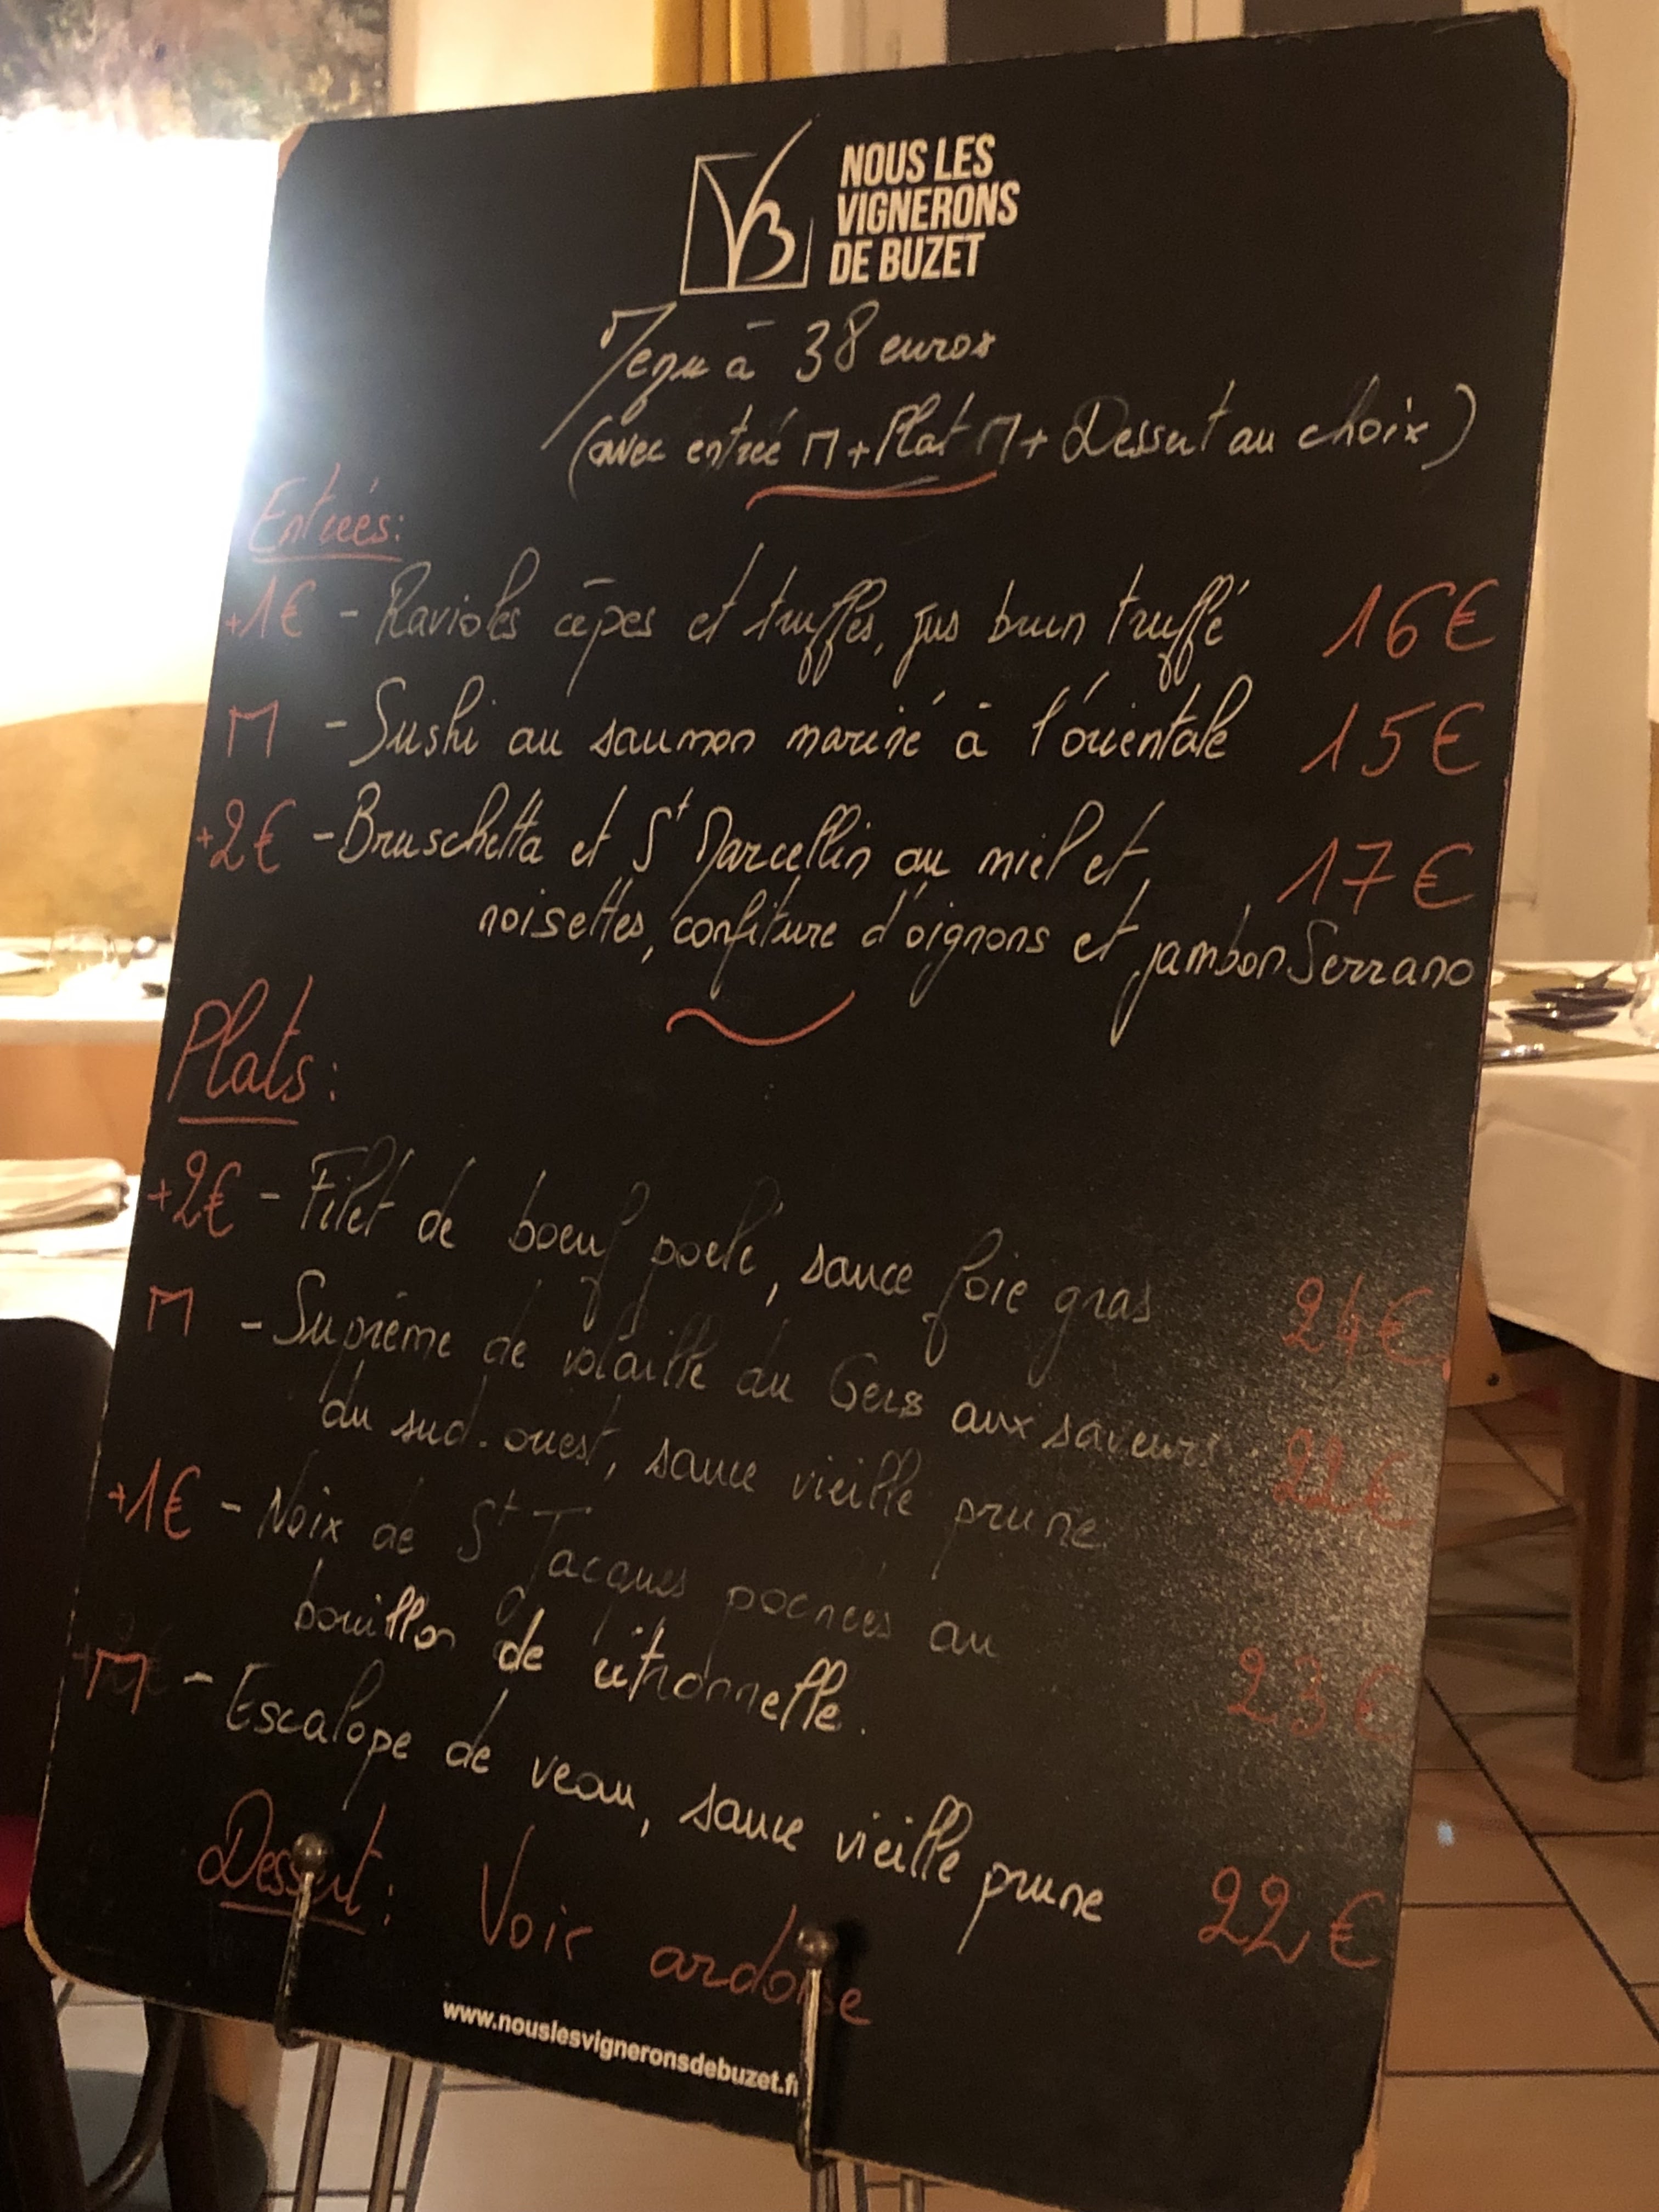 VB
NOUS LES
VIGNERONS
DE BUZET
Menu à 38 euros
(avec entrée M + Plat M + Dessert au choix)
Entrées:
+1€ - Ravioles cèpes et truffes, jus brun truffé 16€
M - Sushi au saumon mariné à l'orientale 15€
+2€ - Bruschetta et St Marcellin au miel et, 17€
noisettes, confiture d'oignons et jambon Serrano
Plats:
+2€ - Filet de boeuf poêlé, sauce foie gras 24€
M - Suprême de volaille du Gers aux saveurs 22€
du sud-ouest, sauce vieille prune.
+1€ - Noix de St Jacques pochées au
bouillon de citronnelle. 23€
M - Escalope de veau, sauce vieille prune 22€
Dessert: Voir ardoise
www.nouslesvigneronsdebuzet.fr